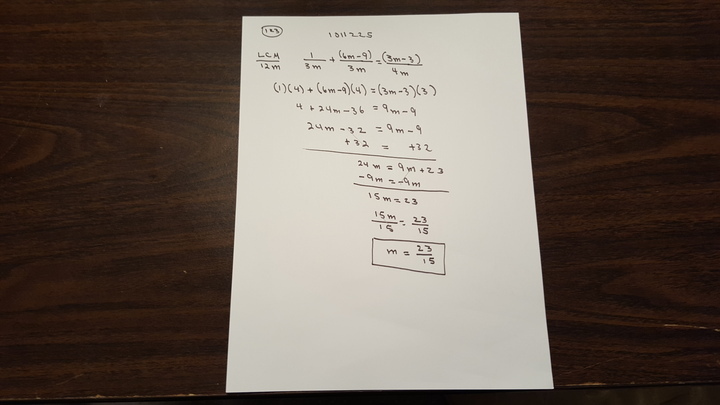 123
1011225
LCM/12m 1/3m + (6m-9)/3m = (3m-3)/4m
(1)(4) + (6m-9)(4) = (3m-3)(3)
4 + 24m - 36 = 9m - 9
24m - 32 = 9m - 9
+32 = +32
24m = 9m + 23
-9m = -9m
15m = 23
15m/15 = 23/15
m = 23/15